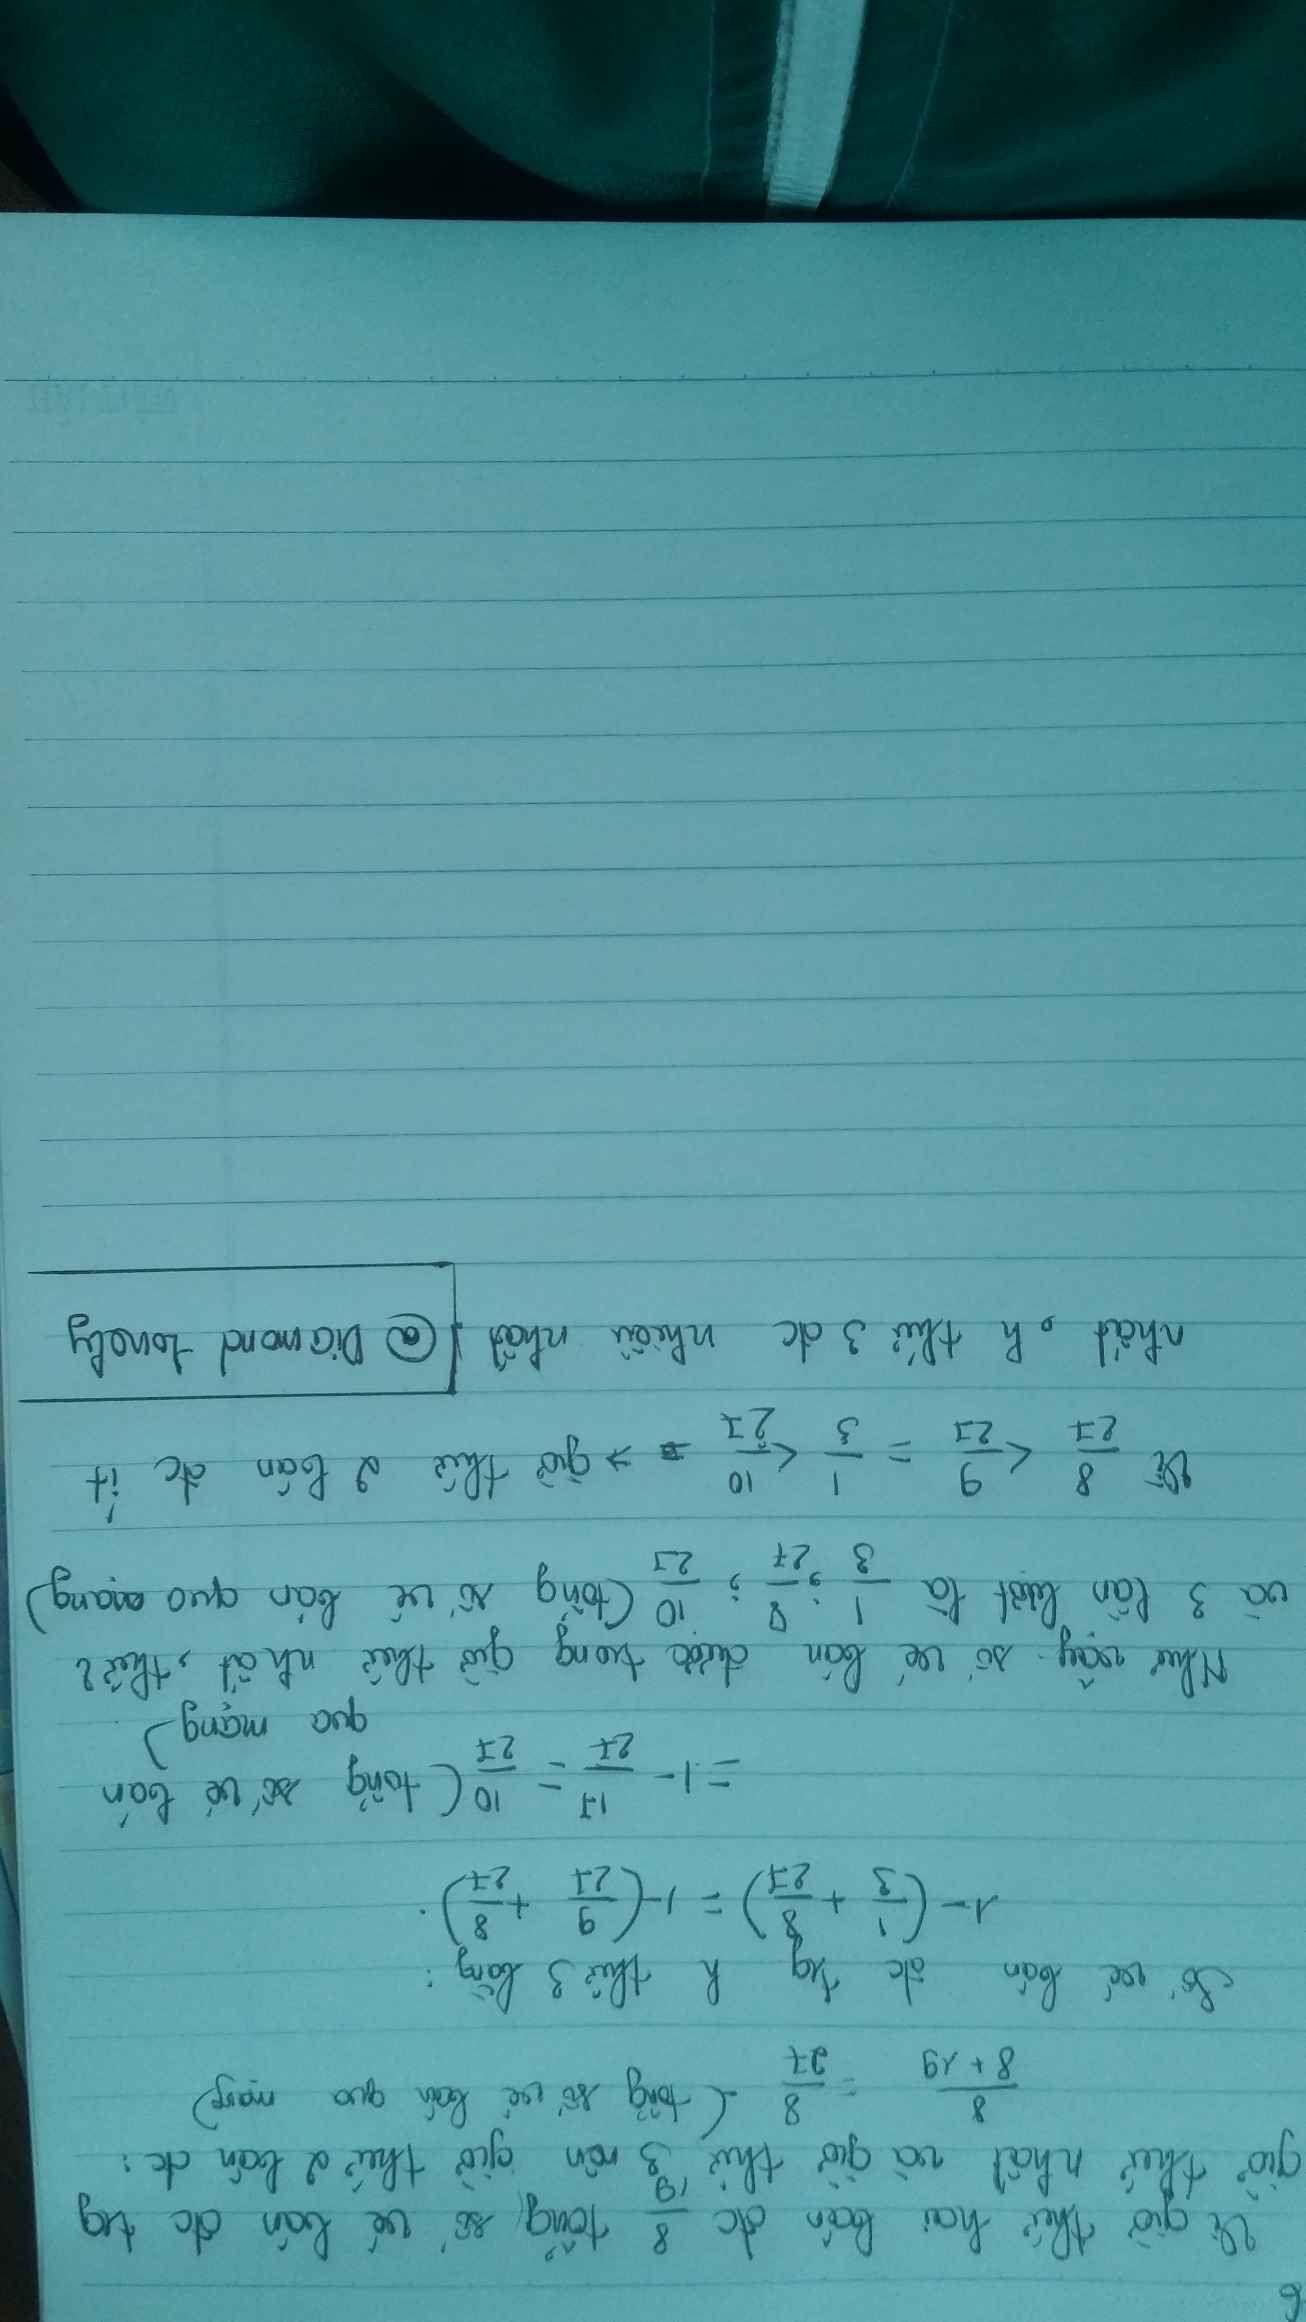 6
Vì giờ thứ hai bán đc 8/19 tổng số vé bán đc tg
giờ thứ nhất và giờ thứ 3 nên giờ thứ 2 bán đc:
8/(8+19) = 8/27 (tổng số vé bán qua mạng)
Số vé bán đc tg h thứ 3 bằng:
1-(1/3 + 8/27) = 1-(9/27 + 8/27).
= 1- 17/27 = 10/27 (tổng số vé bán
qua mạng)
Như vậy số vé bán được trong giờ thứ nhất, thứ 2
và 3 lần lượt là 1/3; 8/27; 10/27 (tổng số vé bán qua mạng)
Vì 8/27 < 9/27 = 1/3 < 10/27 → giờ thứ 2 bán đc ít
nhất, h thứ 3 đc nhiều nhất
@ Diamond Lonely